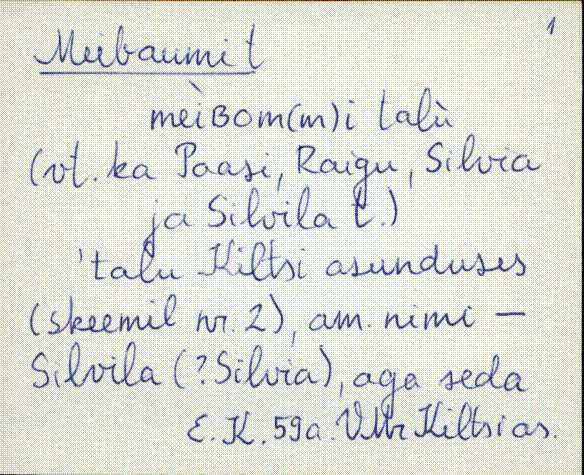 1
Meibaumi t
meìBom(m)i talù
(vt. ka Paasi, Raigu, Silvia
ja Silvila t.)
'talu Kiltsi asunduses
(skeemil nr. 2), am. nimi —
Silvila (? Silvia), aga seda
E. K. 59a. VMr Kiltsi as.